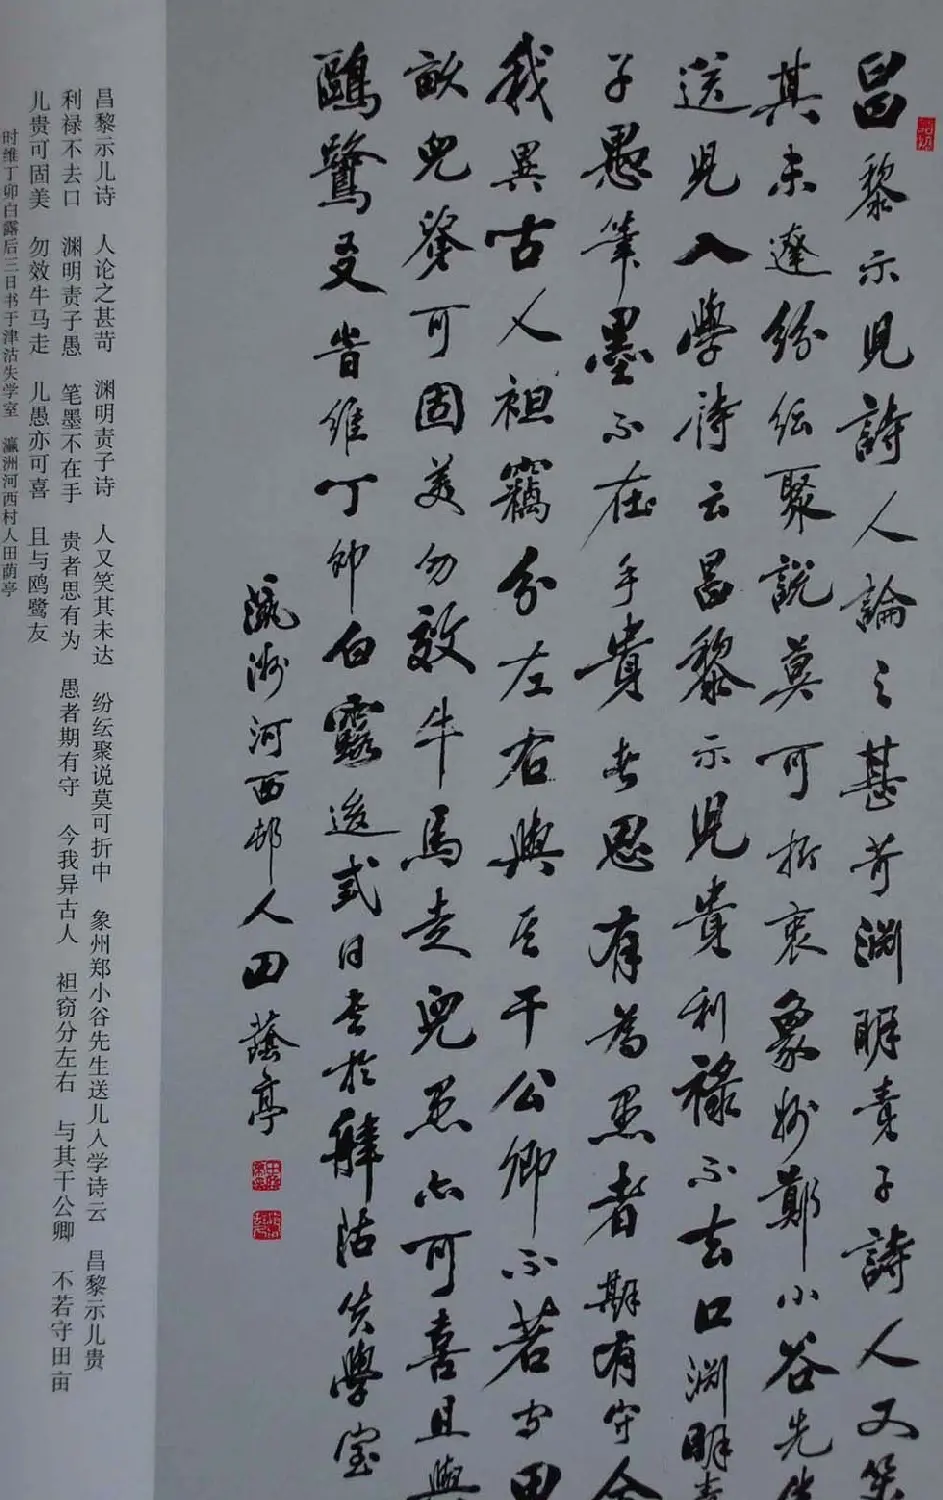 昌黎示兒詩人論之甚苛淵明責子詩人又笑
其未達紛紜聚說莫可折衷象州鄭小谷先生
送兒入學詩云昌黎示兒貴利祿不去口淵明責
子愚筆墨不在手貴者思有為愚者期有守今
我異古人袒竊分左右與其干公卿不若守田
畝兒貴可固美勿效牛馬走兒愚亦可喜且與
鷗鷺友旹維丁卯白露後弎日書於津沽失學室
瀛洲河西邨人田蔭亭
昌黎示儿诗 人论之甚苛 渊明责子诗 人又笑其未达 纷纭聚说莫可折中 象州郑小谷先生送儿入学诗云 昌黎示儿贵
利禄不去口 渊明责子愚 笔墨不在手 贵者思有为 愚者期有守 今我异古人 袒窃分左右 与其干公卿 不若守田亩
儿贵可固美 勿效牛马走 儿愚亦可喜 且与鸥鹭友
时维丁卯白露后三日书于津沽失学室 瀛洲河西村人田荫亭